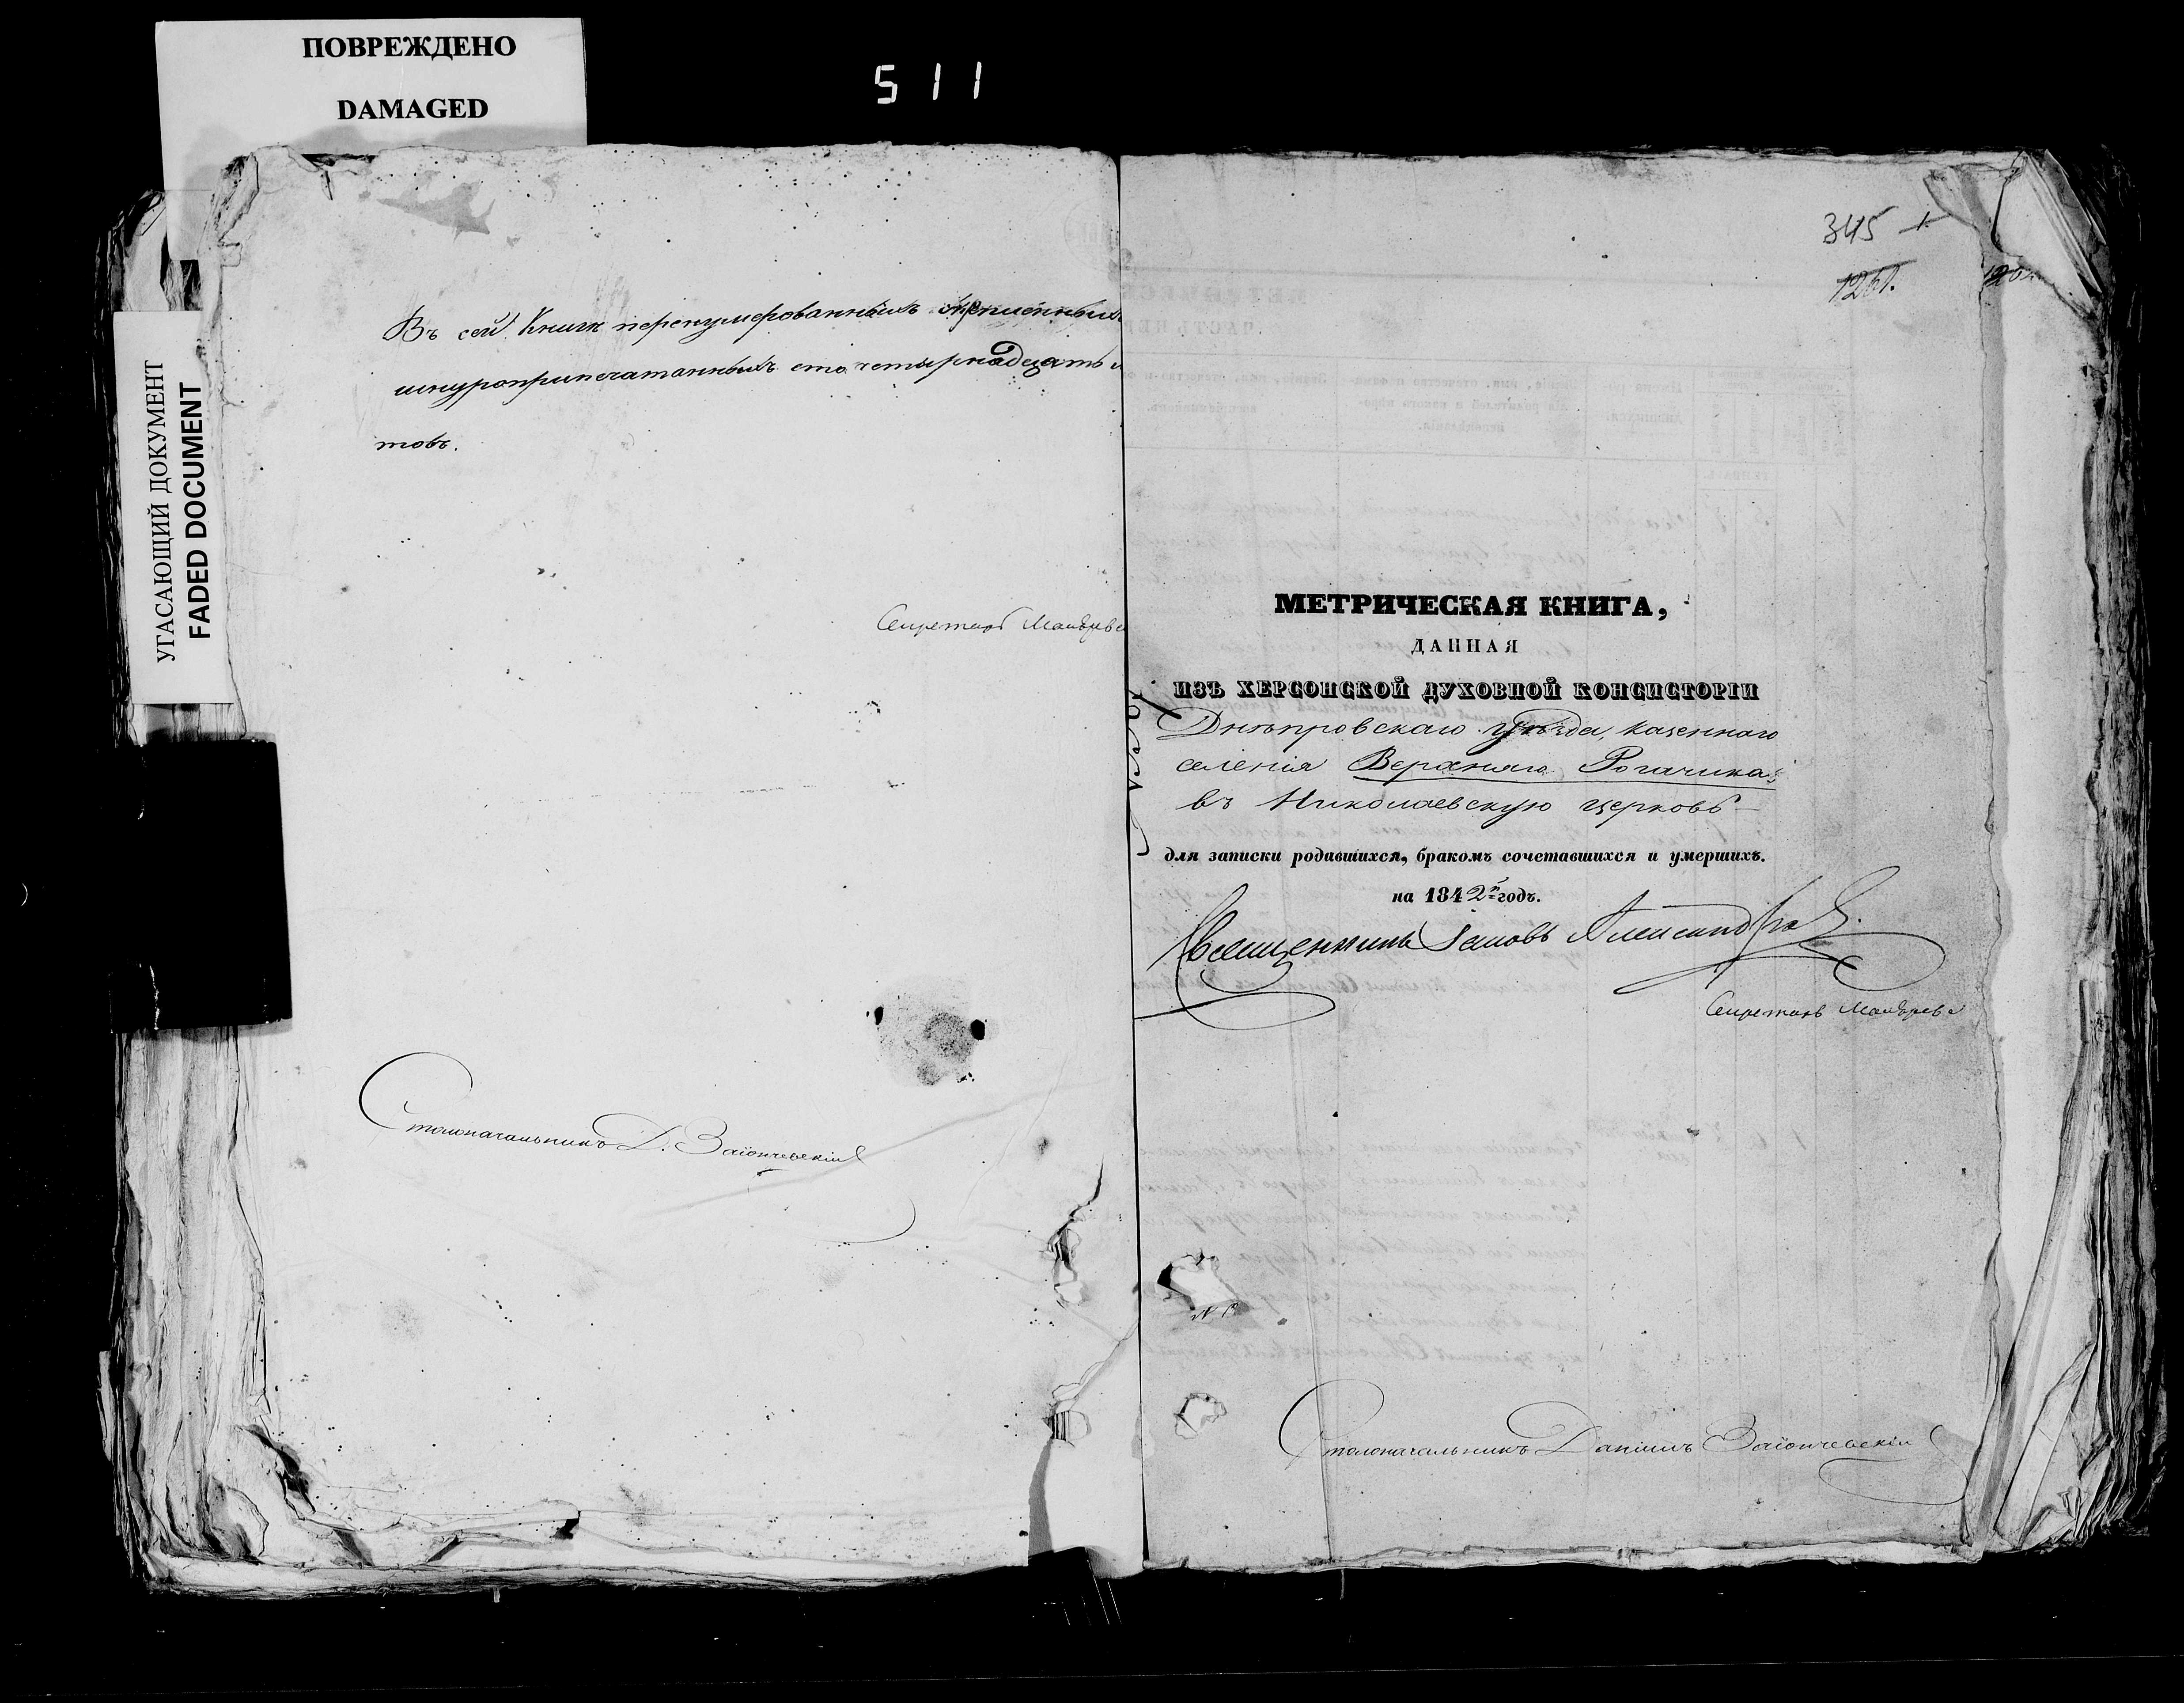 ПОВРЕЖДЕНО
DAMAGED
511
УГАСАЮЩИЙ ДОКУМЕНТ
FADED DOCUMENT
Въ сей Книгѣ перенумерованныхъ скрепленныхъ
шнуроприпечатанныхъ сто четырнадцать
товъ.
Секретарь
Столоначальникъ Д. Заіончевскій
345
1261.
МЕТРИЧЕСКАЯ КНИГА,
ДАННАЯ
ИЗЪ ХЕРСОНСКОЙ ДУХОВНОЙ КОНСИСТОРІИ
Днѣпровскаго уѣзда, казеннаго
селенія Верхняго Рогачика
въ Николаевскую церковь
для записки родившихся, бракомъ сочетавшихся и умершихъ.
на 1842й годъ.
Священникъ Іаковъ
Секретарь
Столоначальникъ Даніилъ Заіончевскій